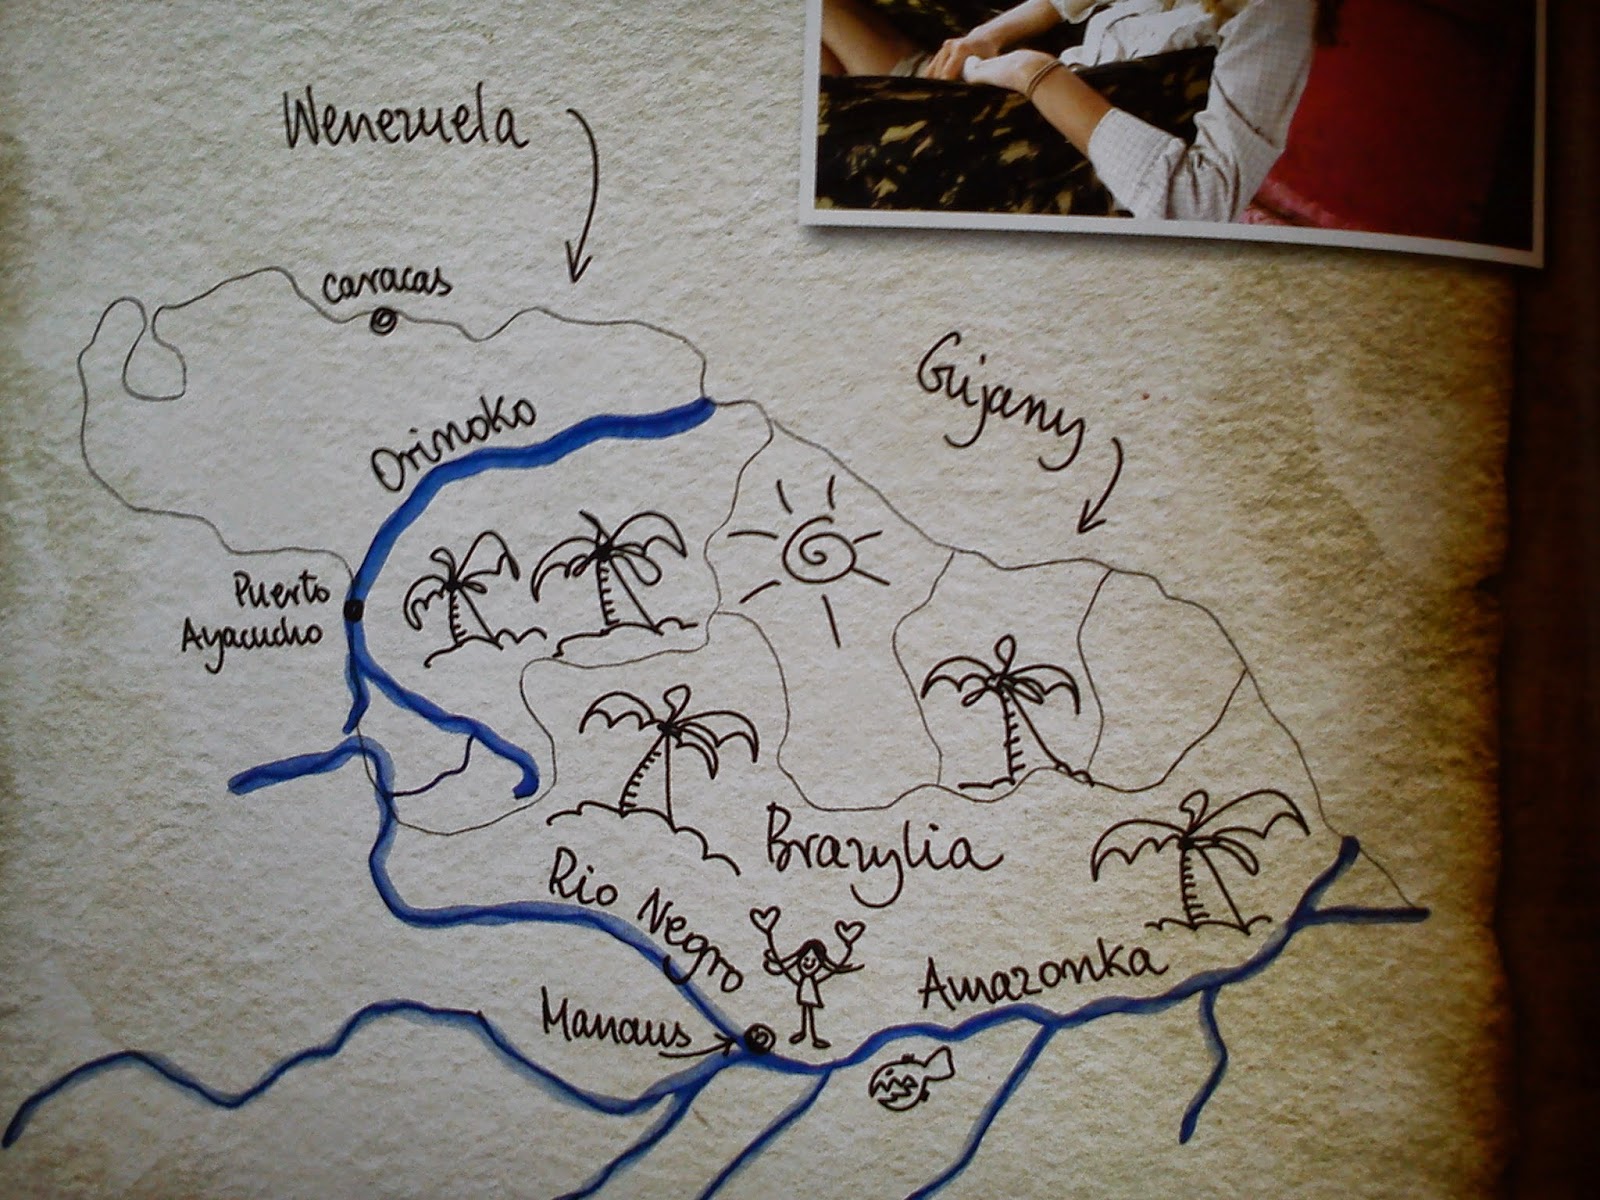 Wenezuela
Caracas
Gujany
Orinoko
Puerto
Ayacucho
Brazylia
Rio Negro
Amazonka
Manaus